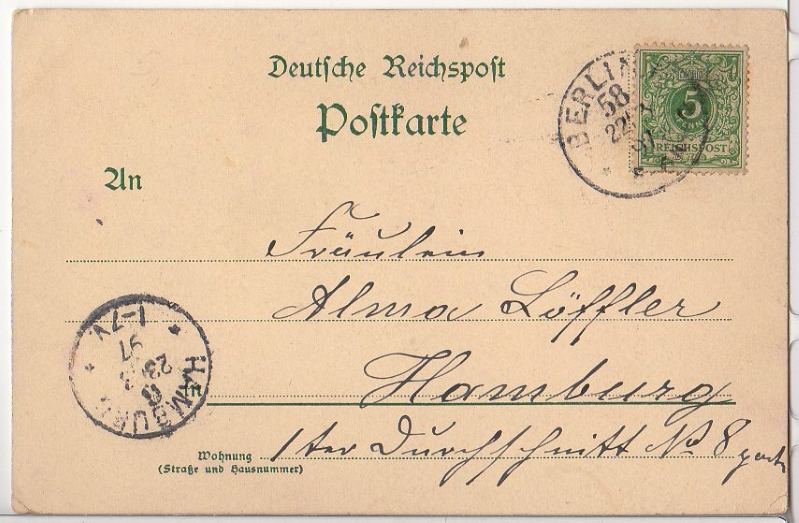 Deutsche Reichspost
Postkarte
BERLIN
58
22
97
5
REICHSPOST
An
Fräulein
Alma Löffler
in Hamburg
Wohnung 1ter Durchschnitt No 8 part
(Straße und Hausnummer)
HAMBURG
23
97
1-7V